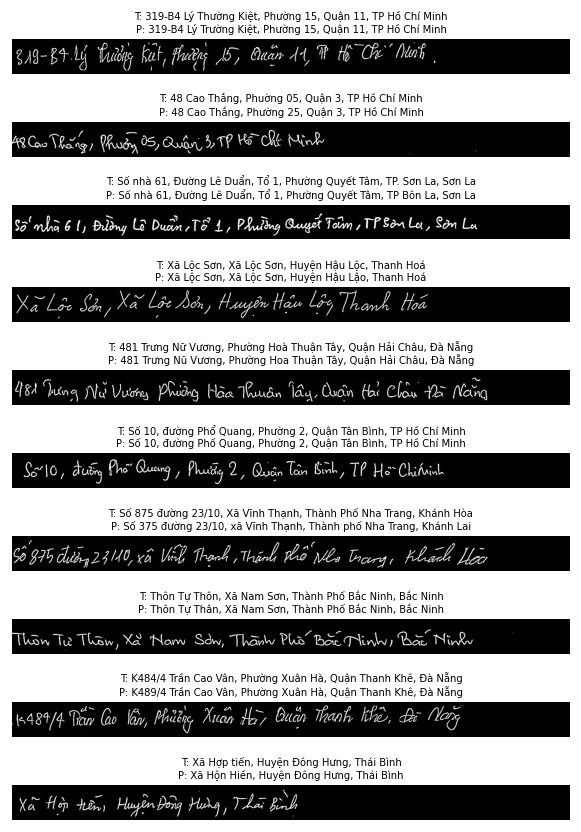 T: 319-B4 Lý Thường Kiệt, Phường 15, Quận 11, TP Hồ Chí Minh
P: 319-B4 Lý Trường Kiệt, Phường 15, Quận 11, TP Hồ Chí Minh
319-B4 Lý Thường Kiệt, Phường 15, Quận 11, TP Hồ Chí Minh.
T: 48 Cao Thắng, Phường 05, Quận 3, TP Hồ Chí Minh
P: 48 Cao Thắng, Phường 25, Quận 3, TP Hồ Chí Minh
48 Cao Thắng, Phường 05, Quận 3, TP Hồ Chí Minh
T: Số nhà 61, Đường Lê Duẩn, Tổ 1, Phường Quyết Tâm, TP. Sơn La, Sơn La
P: Số nhà 61, Đường Lê Duẩn, Tổ 1, Phường Quyết Tâm, TP Bôn La, Sơn La
Số nhà 61, Đường Lê Duẩn, Tổ 1, Phường Quyết Tâm, TP Sơn La, Sơn La
T: Xã Lộc Sơn, Xã Lộc Sơn, Huyện Hậu Lộc, Thanh Hoá
P: Xã Lộc Sơn, Xã Lộc Sơn, Huyện Hậu Lậo, Thanh Hoá
Xã Lộc Sơn, Xã Lộc Sơn, Huyện Hậu Lộc, Thanh Hoá
T: 481 Trưng Nữ Vương, Phường Hoà Thuận Tây, Quận Hải Châu, Đà Nẵng
P: 481 Trưng Nữ Vương, Phường Hoa Thuận Tây, Quận Hải Châu, Đà Nẵng
481 Trưng Nữ Vương Phường Hòa Thuận Tây, Quận Hải Châu Đà Nẵng
T: Số 10, đường Phổ Quang, Phường 2, Quận Tân Bình, TP Hồ Chí Minh
P: Số 10, đường Phố Quang, Phường 2, Quận Tân Bình, TP Hồ Chí Minh
Số 10, đường Phổ Quang, Phường 2, Quận Tân Bình, TP Hồ Chí Minh
T: Số 875 đường 23/10, Xã Vĩnh Thạnh, Thành Phố Nha Trang, Khánh Hòa
P: Số 375 đường 23/10, xã Vĩnh Thạnh, Thành phố Nha Trang, Khánh Lai
Số 875 đường 23/10, xã Vĩnh Thạnh, Thành phố Nha Trang, Khánh Hòa
T: Thôn Tự Thôn, Xã Nam Sơn, Thành Phố Bắc Ninh, Bắc Ninh
P: Thôn Tự Thân, Xã Nam Sơn, Thành Phố Bắc Ninh, Bắc Ninh
Thôn Tự Thôn, Xã Nam Sơn, Thành Phố Bắc Ninh, Bắc Ninh
T: K484/4 Trần Cao Vân, Phường Xuân Hà, Quận Thanh Khê, Đà Nẵng
P: K489/4 Trần Cao Vân, Phường Xuân Hà, Quận Thanh Khê, Đà Nẵng
K484/4 Trần Cao Vân, Phường Xuân Hà, Quận Thanh Khê, Đà Nẵng
T: Xã Hợp tiến, Huyện Đông Hưng, Thái Bình
P: Xã Hộn Hiền, Huyện Đông Hưng, Thái Bình
Xã Hợp tiến, Huyện Đông Hưng, Thái Bình